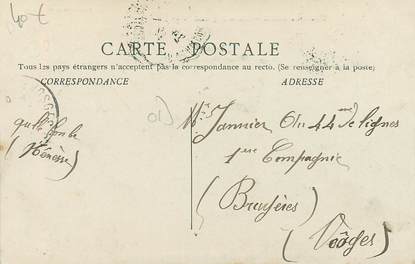 40 €
CARTE POSTALE
Tous les pays étrangers n'acceptent pas la correspondance au recto. (Se renseigner à la poste)
CORRESPONDANCE
ADRESSE
01)
Mr Jannier 44me de lignes
1ere Compagnie
(Bruyères)
(Vôsges)